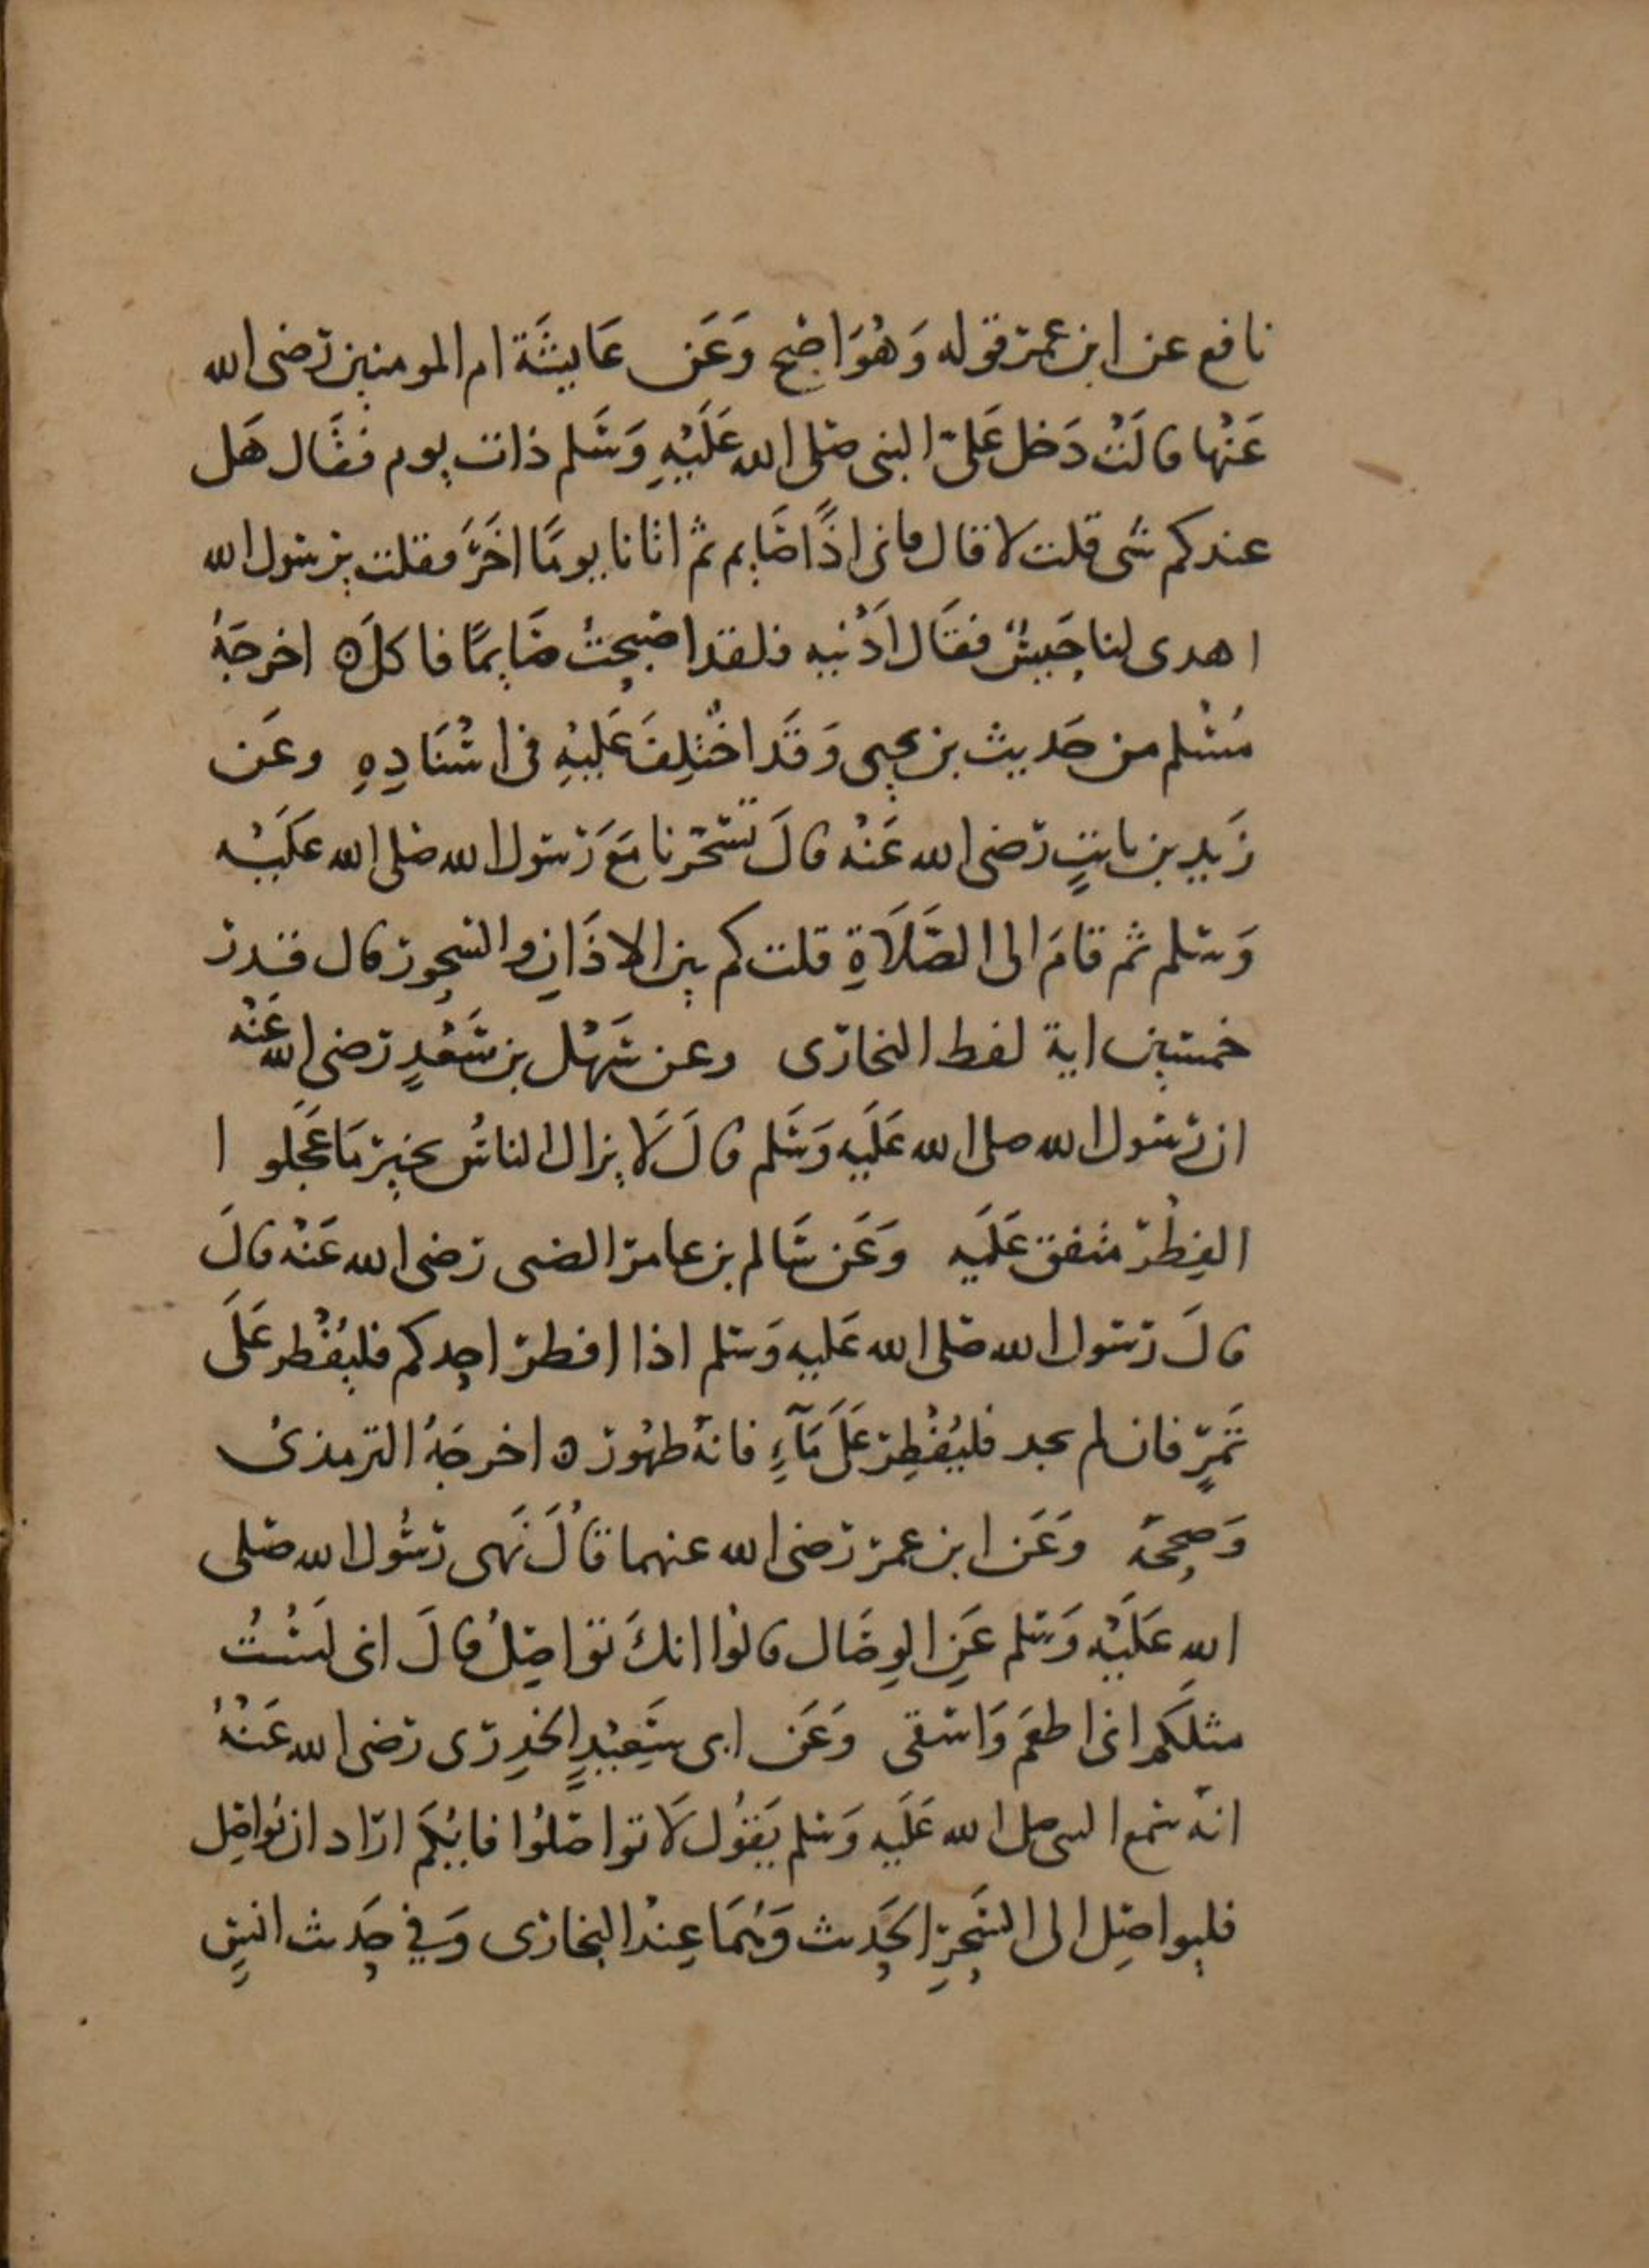 نافع عن ابن عمر قوله وَهُوَ اصْح وَعَن عَايشَة ام المومنين رَضى الله
عَنْها قالَتْ دَخل عَلىّ النبى صَلى الله عَلَيْهِ وَسَلم ذات يوم فقَال هَل
عندكم شى قلت لا قال فانى اذًا صَايم ثم اتانا يومًا اخَرَ فقلت يرسول الله
اهدى لنا حَيسٌ فقَال اَدْنيه فلقد اصْبحتُ صَايمًا فاكل ه اخرجَهُ
مُسْلم من حَديث بن يحيى وَقَد اخْتُلِفَ عَليْهِ فى اسْنَادِهِ وعَن
زَيد بن ثابتٍ رَضى الله عَنْه قالَ تسَحّرنا مَعَ رَسول الله صَلى الله عَلَيْه
وَسَلم ثم قامَ الى الصَّلَاةِ قلت كم بين الاذَانِ والسحور قال قدر
خمسين اية لفط البخارى وعن سَهْل بن سَعْدٍ رَضى الله عَنْه
ان رَسُول الله صلى الله عَلَيه وَسَلم قالَ لَا يزال الناسُ بخير مَا عَجَلوا
الفِطْر متفق عَلَيه وَعَن سَالم بن عامر الضبى رَضى الله عَنْه قالَ
قالَ رَسول الله صَلى الله عَليه وَسَلم اذا افطر احدكم فليُفْطر عَلَى
تَمَرٍ فان لم يجد فليُفْطِر عَلَى مَآءٍ فانهُ طهُور ه اخرجَهُ الترمذىُ
وَصححَه وَعَن ابن عمر رَضى الله عنهما قالَ نَهى رَسُول الله صَلى
الله عَلَيْه وَسَلم عَنِ الوِصَال قالوُا انكَ تواصِلُ قالَ انى لسْتُ
مثلكم انى اطعَم وَاسْقى وَعَن ابى سَعِيْدٍ الخدِرى رَضى الله عَنْهُ
انهُ سمع النبى صلى الله عَلَيه وَسَلم يَقوُل لَا تواصَلوُا فايُكم ارَاد ان يُواصِل
فليواصِل الى السَحَرِ الحَديث وَهُمَا عِنْد البخارى وَفي حَديث انسٍ